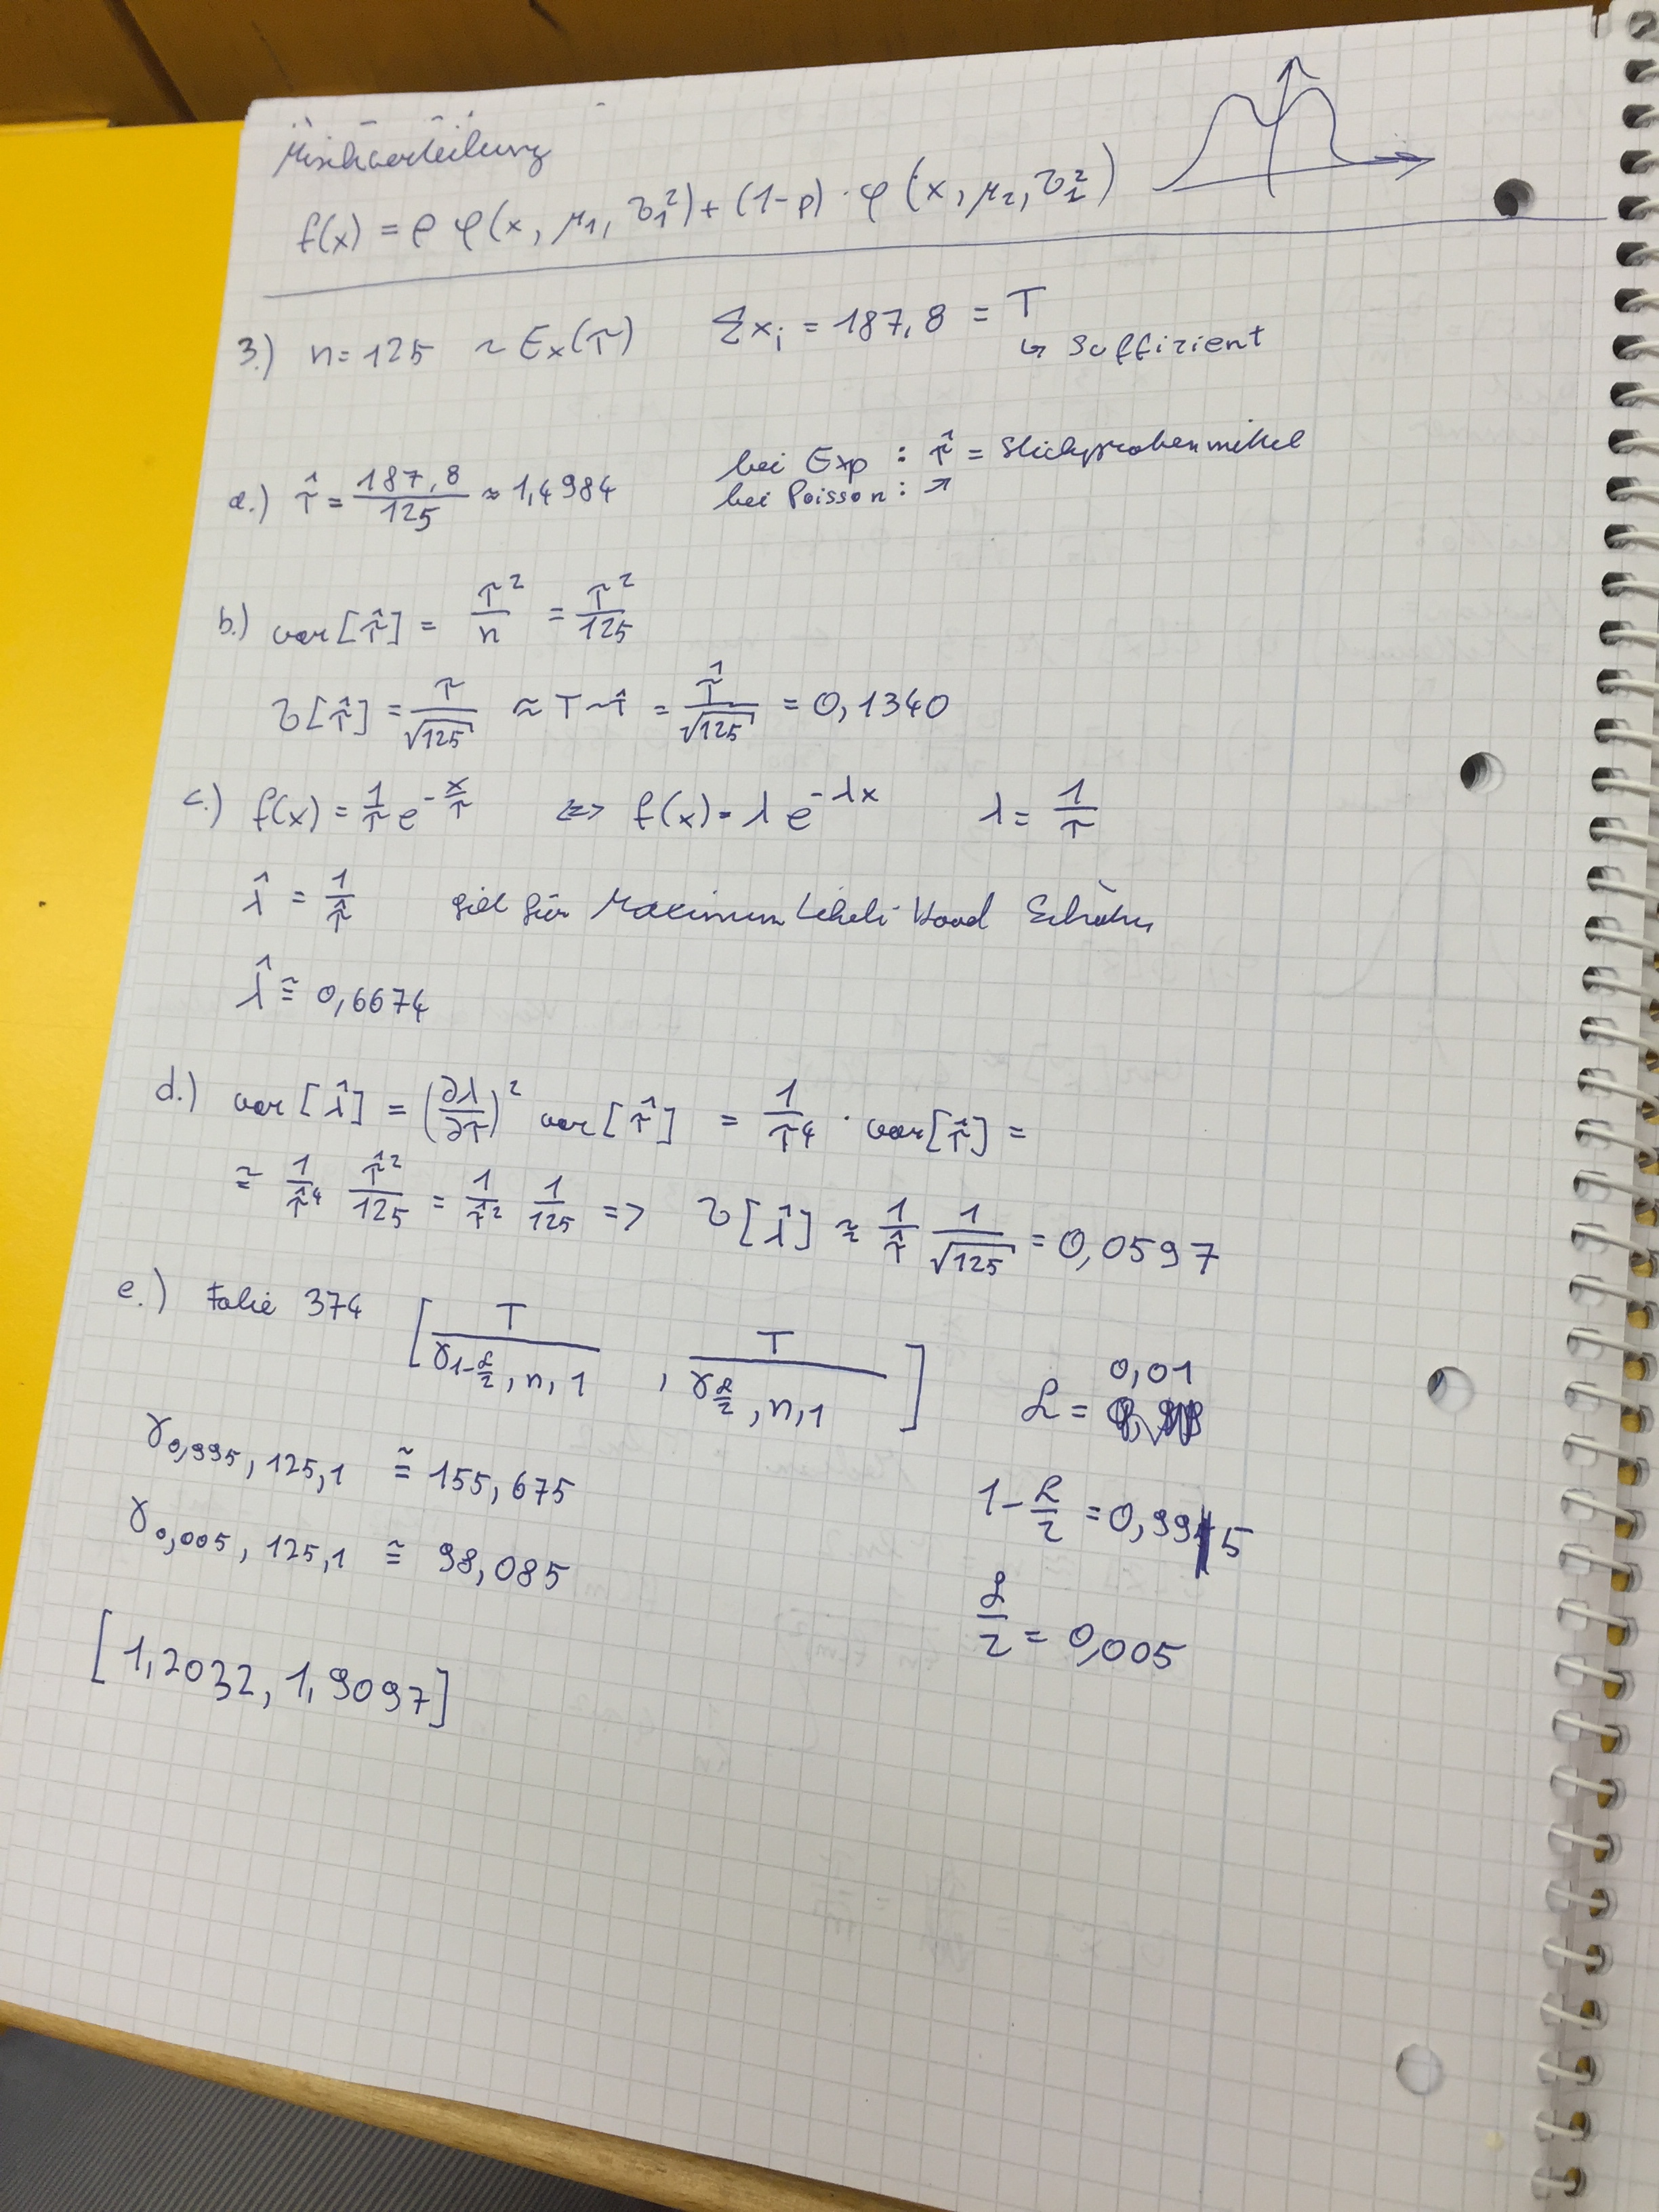 Mischverteilung
f(x) = p φ(x, μ1, σ1²) + (1-p) · φ(x, μ2, σ2²)
3.) n = 125 ~ Ex(τ) Σxi = 187,8 = T
↳ Suffizient
a.) τ̂ = 187,8/125 ≈ 1,4984 bei Exp : τ̂ = Stichprobenmittel
bei Poisson : ↗
b.) var[τ̂] = τ²/n = τ²/125
σ[τ̂] = τ/√125 ≈ T~τ̂ = τ̂/√125 = 0,1340
c.) f(x) = 1/τ e^(-x/τ) <=> f(x) = λ e^(-λx) λ = 1/τ
λ̂ = 1/τ̂ gilt für Maximum Likeli Hood Schätzer
λ̂ ≅ 0,6674
d.) var[λ̂] = (∂λ/∂τ)² var[τ̂] = 1/τ⁴ · var[τ̂] =
≅ 1/τ̂⁴ τ̂²/125 = 1/τ̂² 1/125 => σ[λ̂] ≈ 1/τ̂ 1/√125 = 0,0597
e.) Folie 374 [T/γ1-α/2, n, 1 , T/γα/2, n, 1] α = 0,01
γ0,995, 125, 1 ≅ 155,675
1-α/2 = 0,995
γ0,005, 125, 1 ≅ 98,085
α/2 = 0,005
[1,2032, 1,9097]